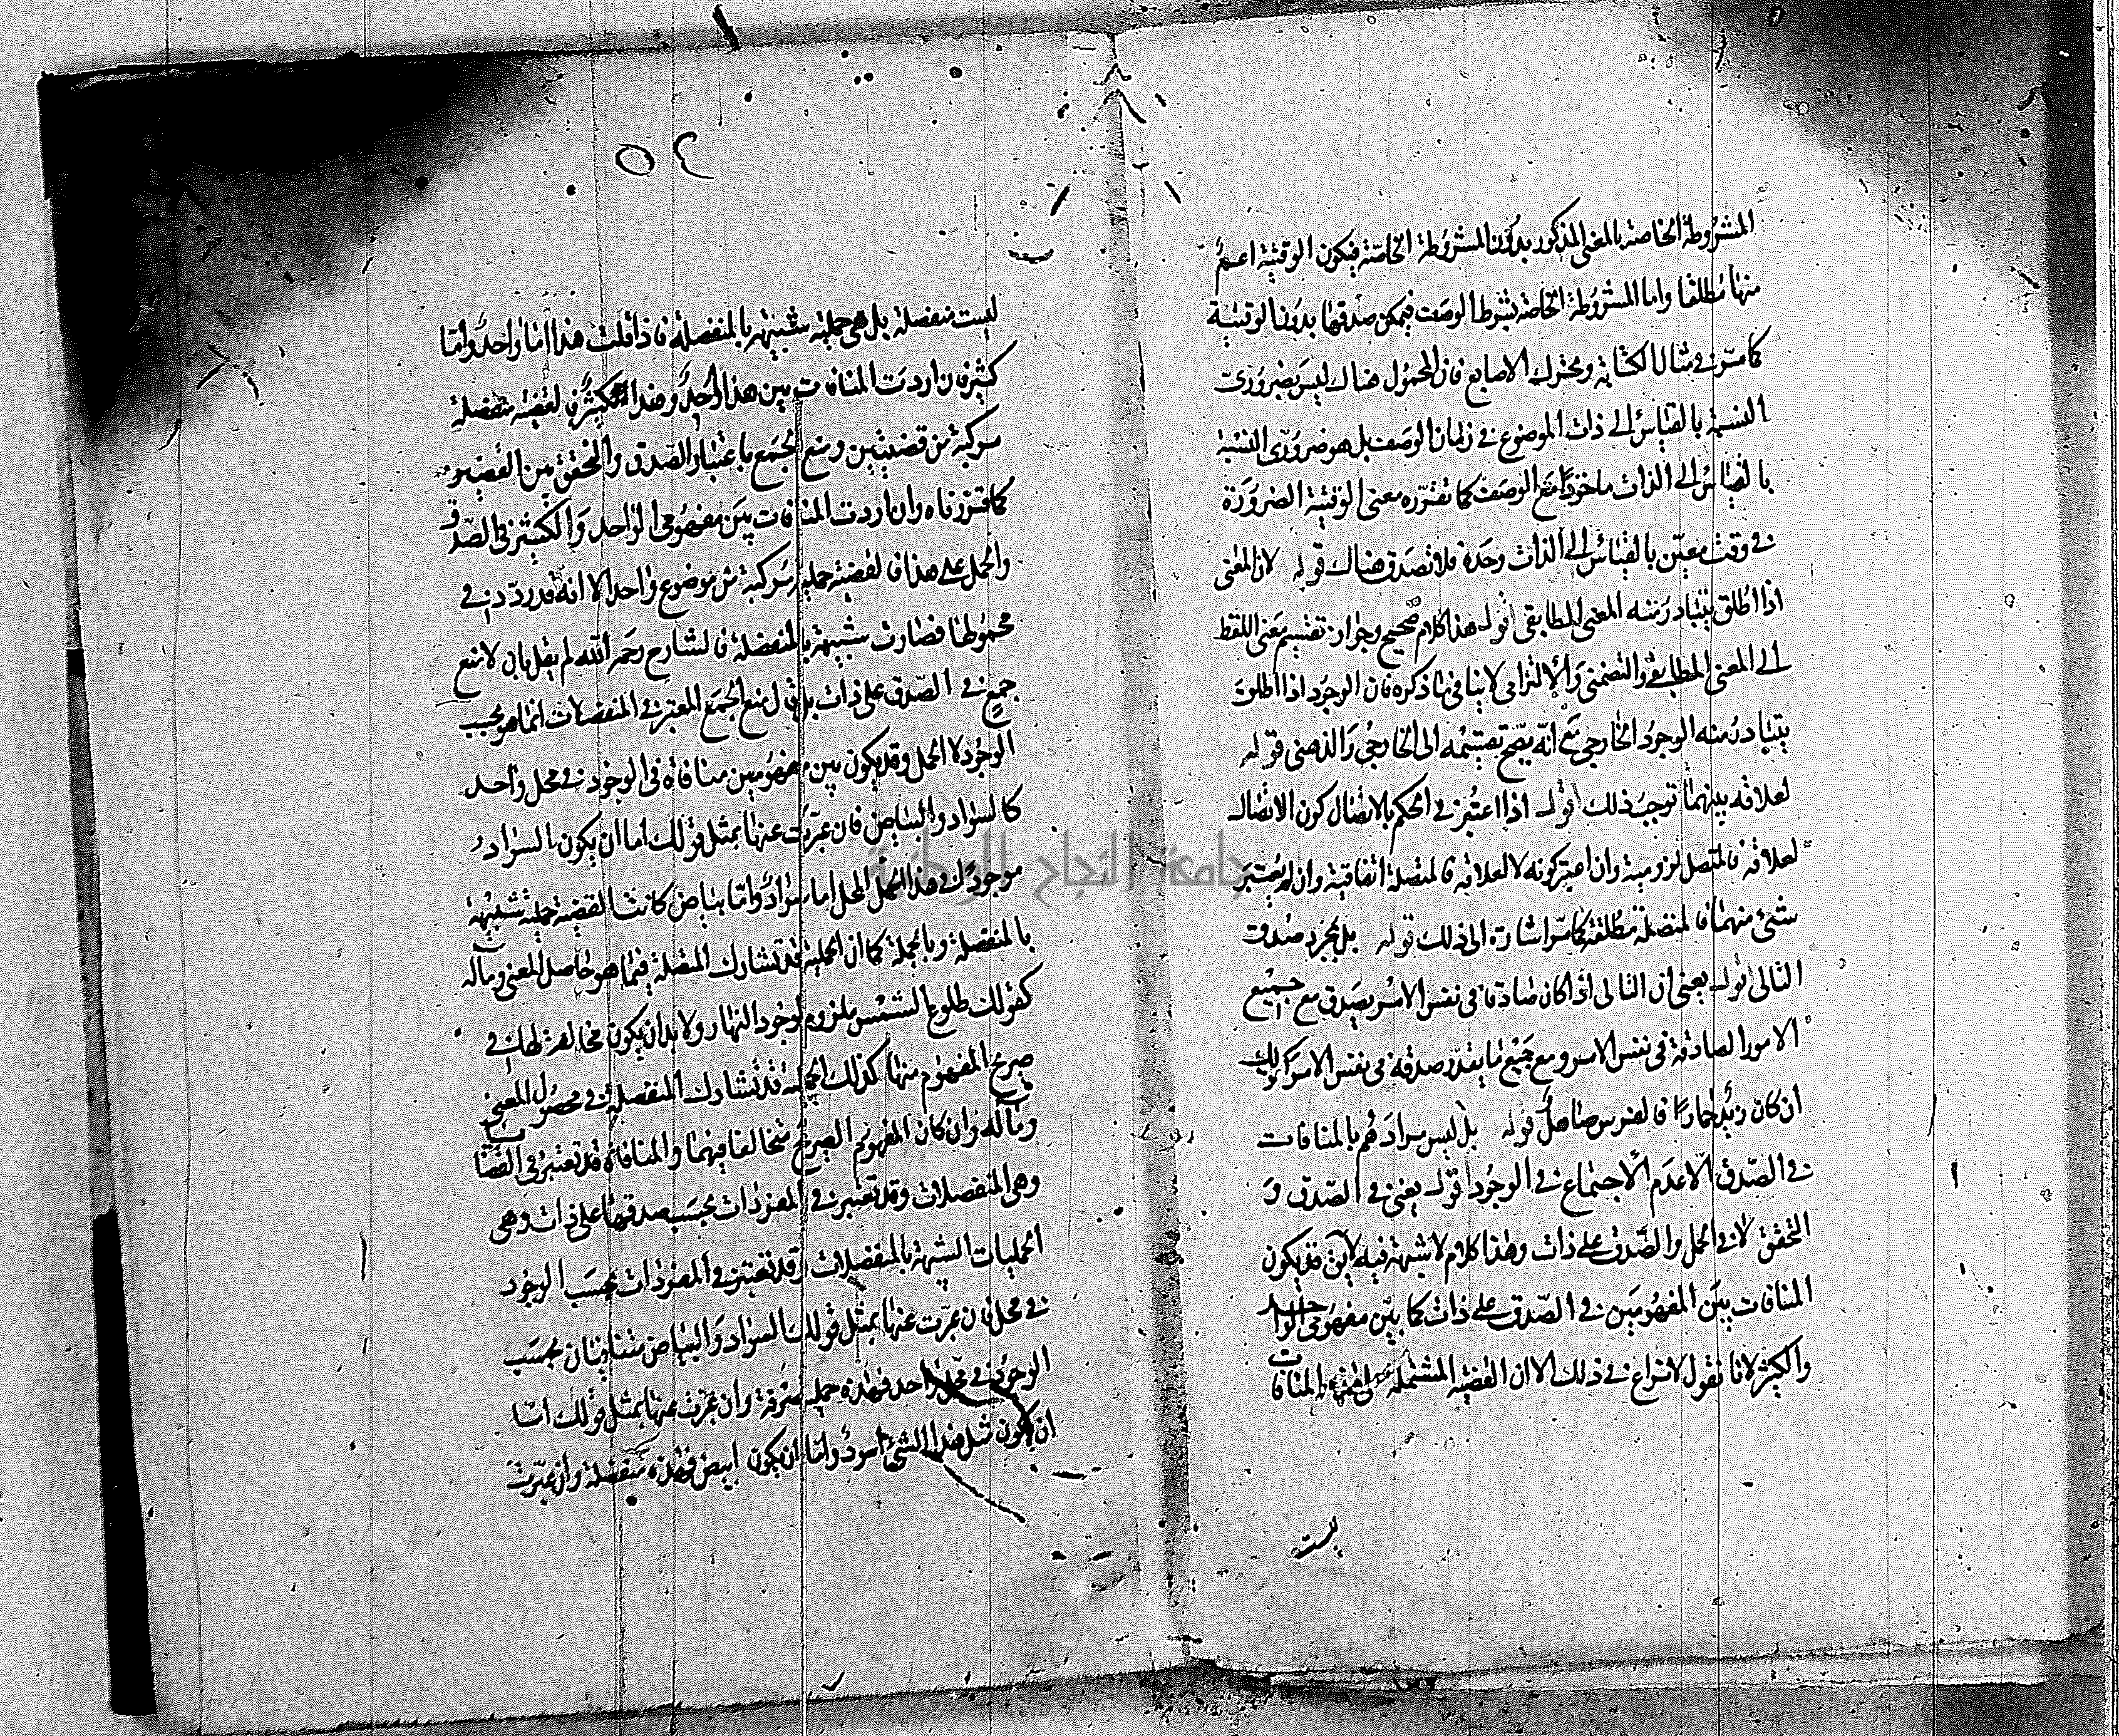 المشروطة الخاصة بالمعنى المذكور بدون المشروطة الخاصة فيكون الوقتية اعم
منها مطلقا واما المشروطة الخاصة بشرط الوصف فيمكن صدقها بدون الوقتية
كما مر في مثال الكتابة وتحرك الاصابع فان المحمول هناك ليس بضرورى
النسبة بالقياس الى ذات الموضوع في زمان الوصف بل هو ضرورى النسبة
بالقياس الى الذات ماخوذا مع الوصف كما تقرره معنى الوقتية الضرورة
في وقت معين بالقياس الى الذات وحده فلا تصدق هناك قوله لان المعنى
اذا اطلق يتبادر منه المعنى المطابقى اقول هذا كلام صحيح وجواز تقسيم معنى اللفظ
الى المعنى المطابقى والتضمنى والالتزامى لا ينافى ما ذكره فان الوجود اذا اطلق
يتبادر منه الوجود الخارجى مع انه يصح تقسيمه الى الخارجى والذهنى قوله
لعلاقة بينهما توجب ذلك اقول اذا اعتبر في الحكم بالاتصال كون الاتصال
لعلاقة فالمتصل لزومية وان اعتبر كونه لا لعلاقة فالمتصلة اتفاقية وان لم يعتبر
شئ منهما فالمتصلة مطلقة كما مر اشارة الى ذلك قوله بل بمجرد صدق
التالى اقول يعنى ان التالى اذا كان صادقا في نفس الامر يصدق مع جميع
الامور الصادقة في نفس الامر ومع جميع ما يقدر صدقه في نفس الامر كقولك
ان كان زيد حمارا فالفرس صاهل قوله بل ليس مرادهم بالمنافات
في الصدق الا عدم الاجتماع في الوجود اقول يعنى في الصدق و
التحقق لا في الحمل والصدق على ذات وهذا كلام لا شبهة فيه لا يق قد يكون
المنافات بين المفهومين في الصدق على ذات كما بين مفهومى الواحد
والكثير لانا نقول لا نزاع في ذلك الا ان القضية المشتملة على هذه المنافات
ليست
٥٢
ليست منفصلة بل هى حملية شبيهة بالمنفصلة فاذا قلت هذا اما واحد واما
كثير فان اردت المنافات بين هذا واحد وهذا كثير فالقضية منفصلة
مركبة من قضيتين ومنع الجمع باعتبار الصدق والتحقق بين القضيتين
كما قررناه وان اردت المنافات بين مفهومى الواحد والكثير في الصدق
والحمل على هذا فالقضية حملية مركبة من موضوع واحد الا انه قد ردد في
محمولها فصارت شبيهة بالمنفصلة فالشارح رحمه الله لم يقل بان لا منع
جمع في الصدق على ذات بل قال منع الجمع المعتبر في المنفصلات انما هو بحسب
الوجود لا الحمل وقد يكون بين مفهومين منافاة في الوجود في محل واحد
كالسواد والبياض فان عبرت عنها بمثل قولك اما ان يكون السواد
موجود في هذا المحل اما سواد واما بياض كانت القضية حملية شبيهة
بالمنفصلة وبالجملة كما ان الحملية قد تشارك المتصلة فيما هو حاصل المعنى ومآله
كقولك طلوع الشمس ملزوم لوجود النهار ولا بد ان يكون مخالفة لها في
صريح المفهوم منها كذلك الحملية قد تشارك المنفصلة في محصول المعنى
ومآله وان كان المفهوم الصريح مخالفا فيهما والمنافاة قد تعتبر في القضايا
وهى المنفصلات وقد تعتبر في المفردات بحسب صدقها على ذات وهى
الحمليات الشبيهة بالمنفصلات وقد تعتبر في المفردات بحسب الوجود
في محل فان عبرت عنها بمثل قولك السواد والبياض متنافيان بحسب
الوجود في محل واحد فهذه حملية صرفة وان عبرت عنها بمثل قولك اما
ان يكون مثل هذا الشئ اسود واما ان يكون ابيض فهذه منفصلة وان عبرت